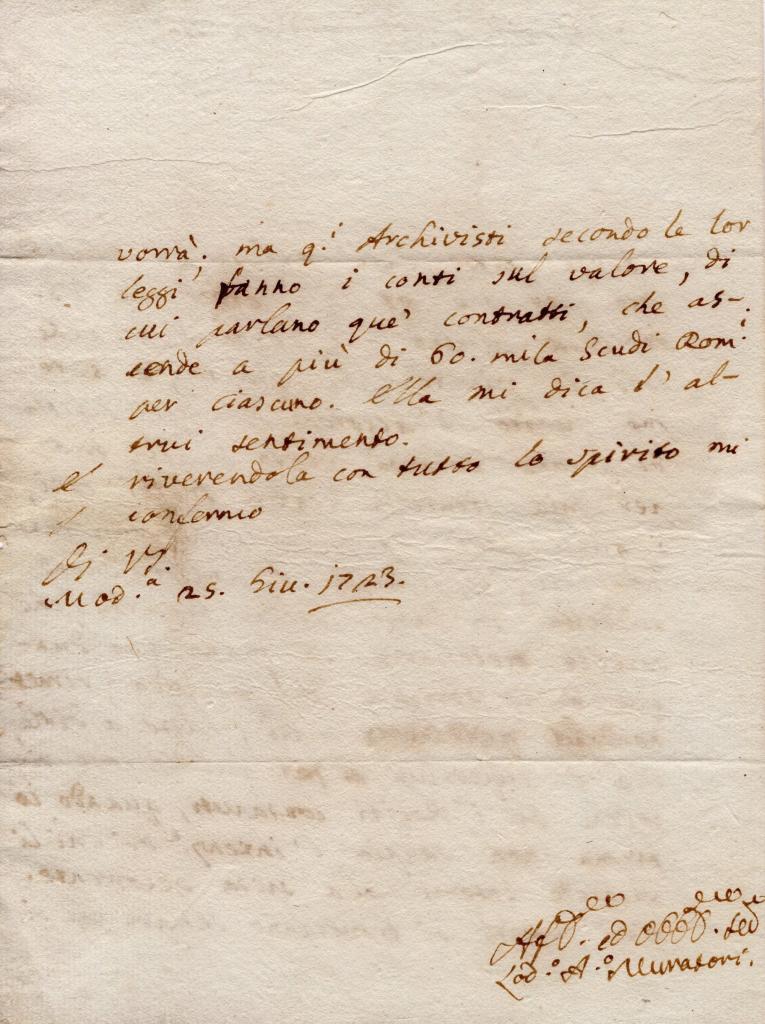 vorrà; ma q.i Archivisti secondo le lor
leggi fanno i conti sul valore, di
cui parlano que' contratti, che as-
cende a più di 60. mila Scudi Rom.i
per ciascuno. Ella mi dica l' al-
trui sentimento.
E riverendola con tutto lo spirito mi
confermo
Di V.S.
Mod.a 25. Giu. 1723.
Aff.mo ed Obb.mo Ser.
Lod.o A.o Muratori.